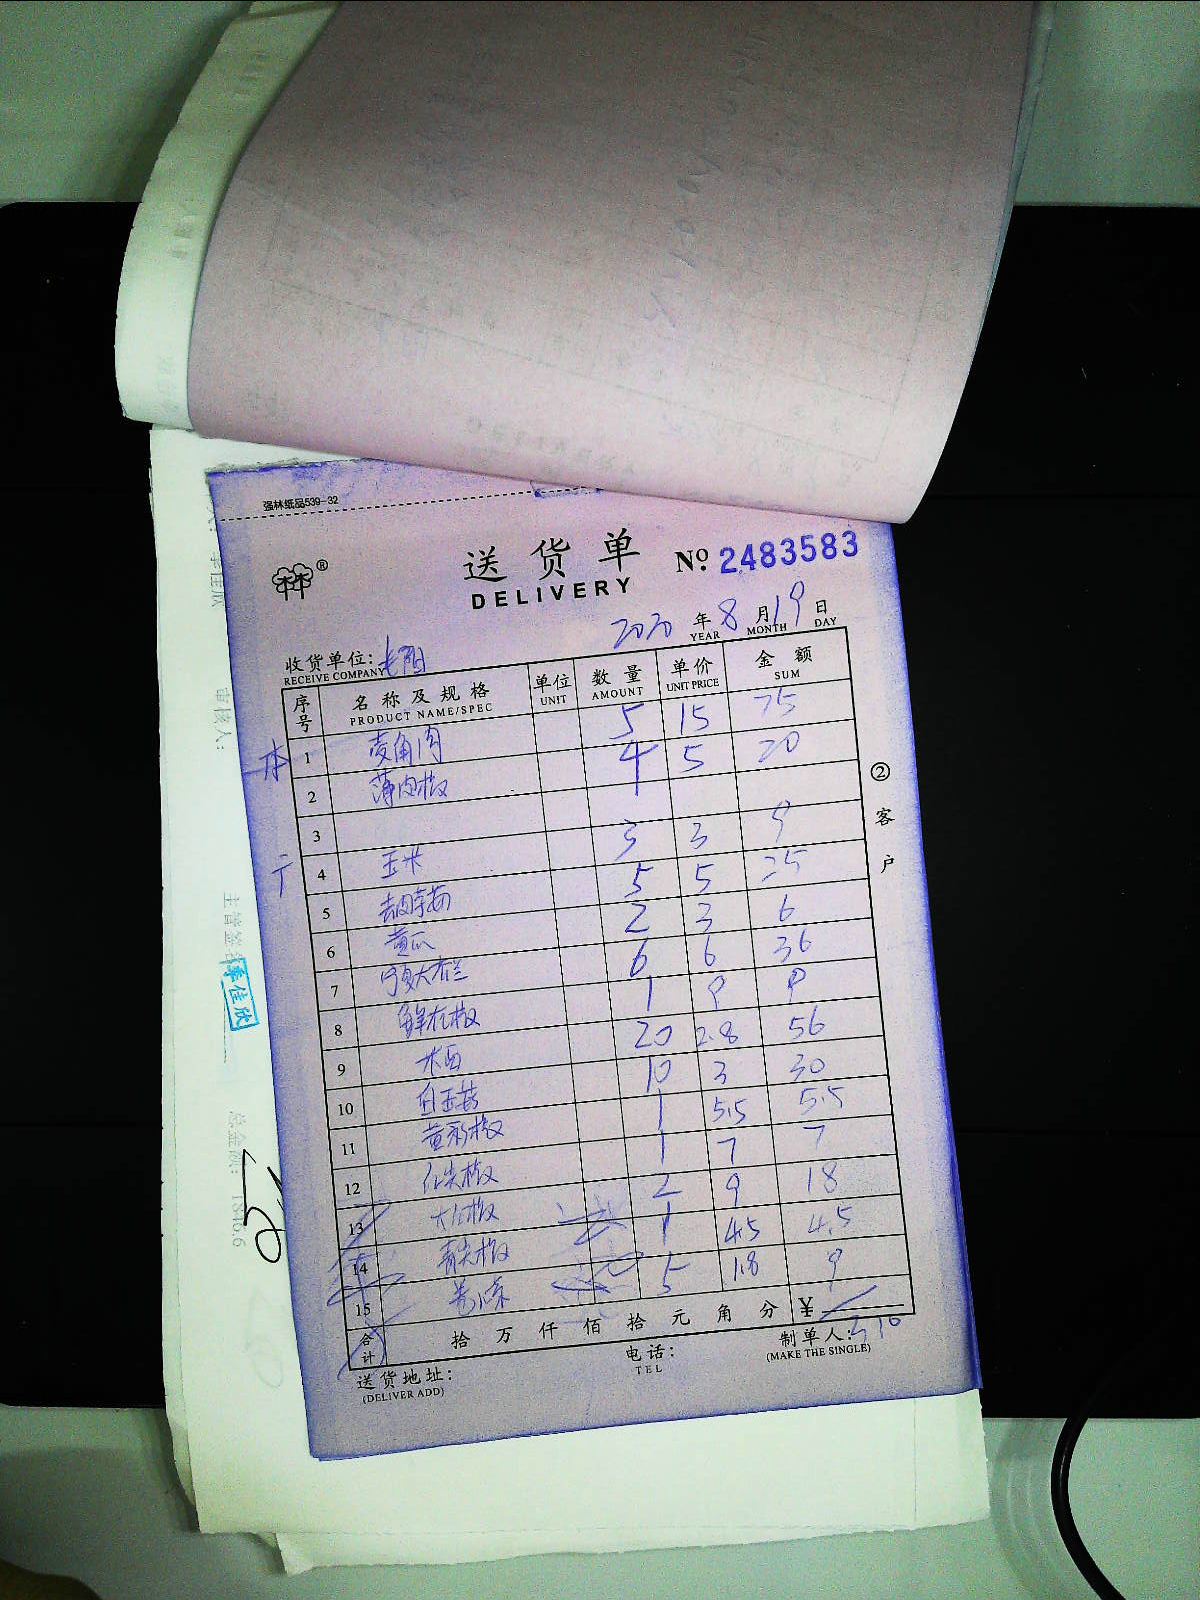 强林纸品539-32
送货单 №. 2483583
DELIVERY
®
2020 年 8 月 19 日
YEAR MONTH DAY
收货单位:
RECEIVE COMPANY
序号 名称及规格 单位 数量 单价 金额
PRODUCT NAME/SPEC UNIT AMOUNT UNIT PRICE SUM
1 菱角肉 5 15 75
2 薄肉椒 4 5 20
3
4 玉米 3 3 9
5 5 5 25
6 黄瓜 2 3 6
7 6 6 36
8 1 9 9
9 20 2.8 56
10 白玉菇 10 3 30
11 黄彩椒 1 5.5 5.5
12 红尖椒 1 7 7
13 大红椒 2 9 18
14 青尖椒 1 4.5 4.5
15 5 1.8 9
合计 拾 万 仟 佰 拾 元 角 分 ¥
310
送货地址:
(DELIVER ADD)
电话:
TEL
制单人:
(MAKE THE SINGLE)
②客户
审核人:
李佳欣